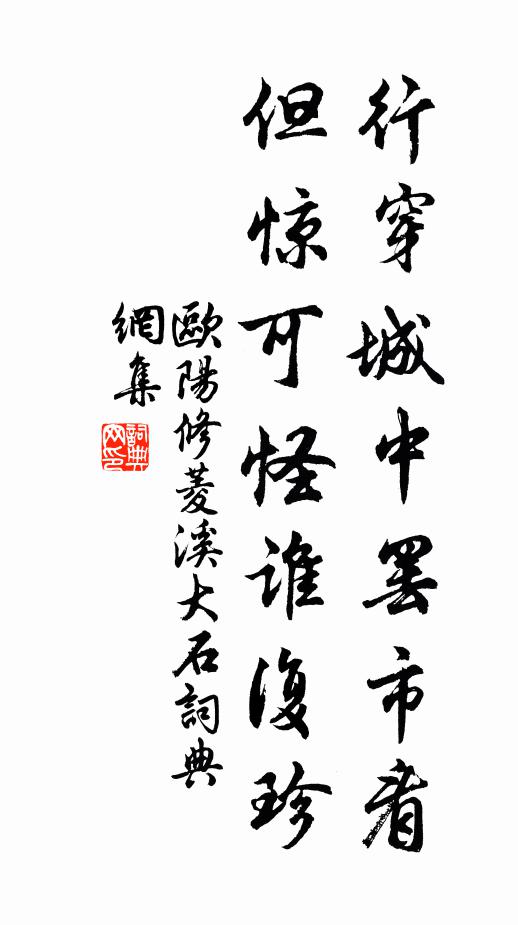 行穿城中罢市看
但惊可怪谁復珍
歐陽修菱溪大石詞典
網集
詞典
网印